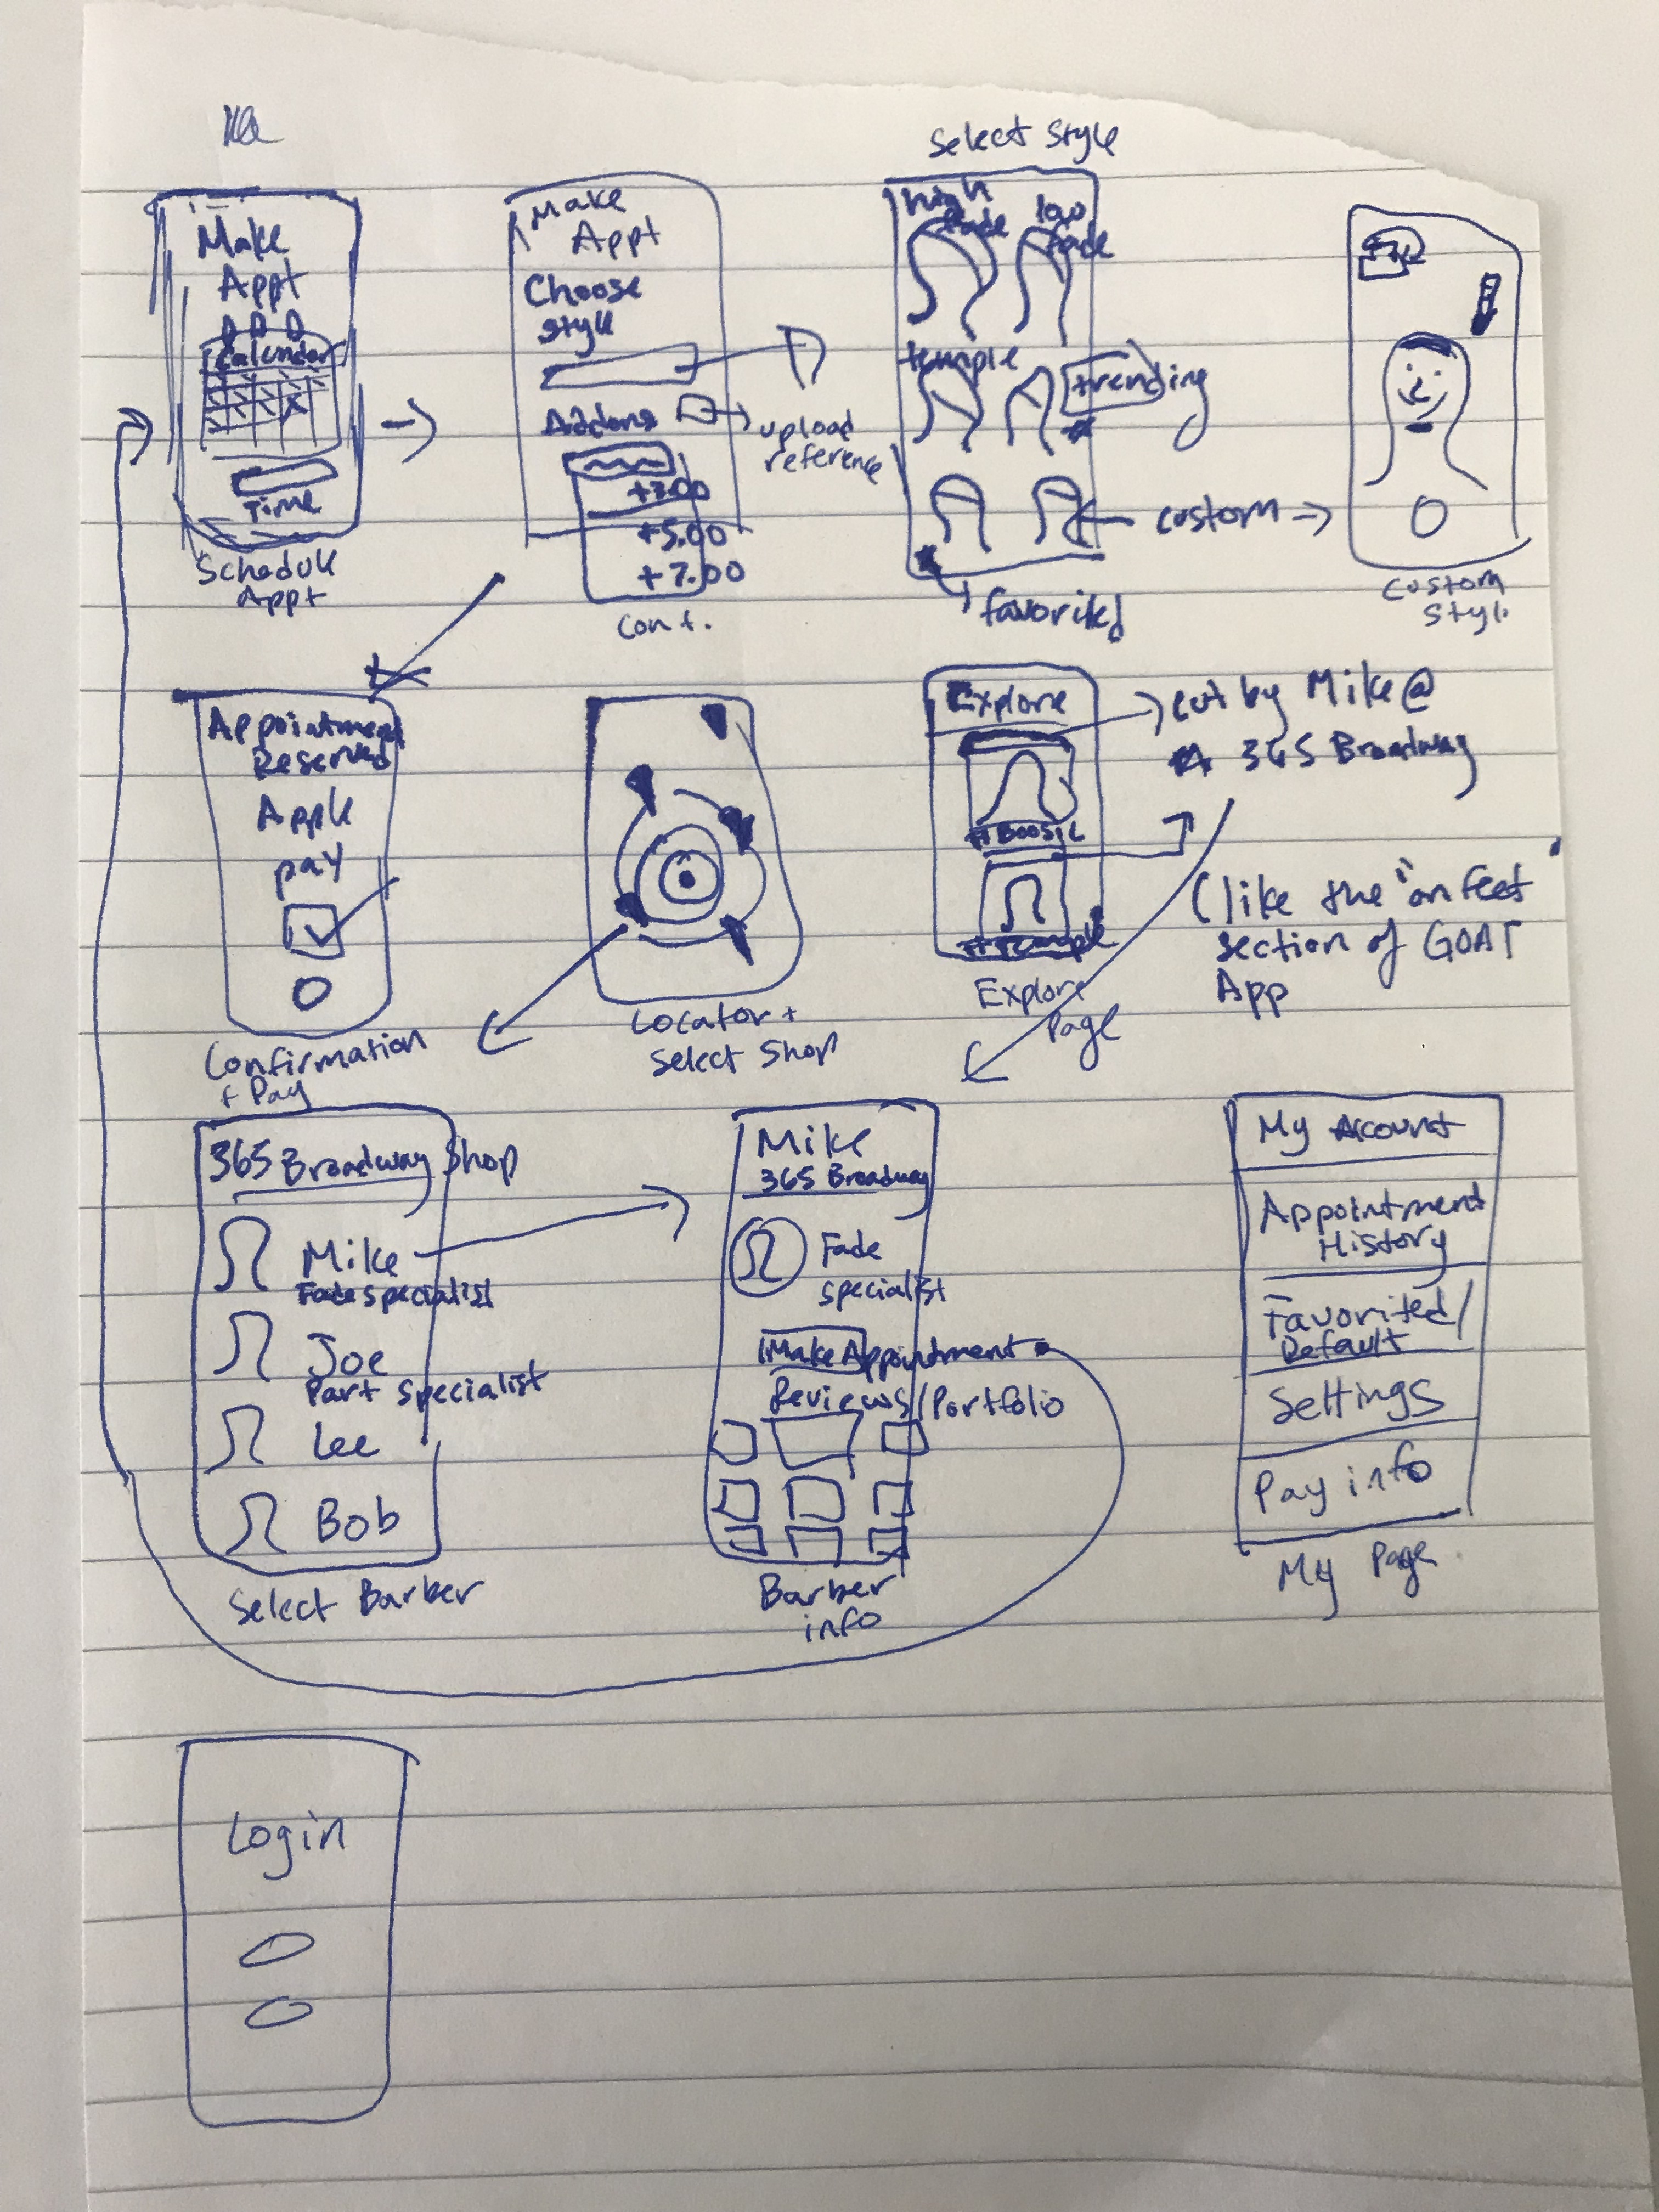 Select Style
Make
Appt
Calendar
Time
Schedule
Appt
Make
Appt
Choose
style
Addons
+3.00
+5.00
+7.00
Cont.
upload
reference
high
fade
low
fade
temple
trending
custom
favorited
Custom
Style
Appointment
Reserved
Apple
pay
Confirmation
+ Pay
Locator +
Select Shop
Explore
#Boosie
#temple
Explore
Page
cut by Mike @
365 Broadway
(like the "on feet"
section of GOAT
App
365 Broadway Shop
Mike
Fade specialist
Joe
Part Specialist
Lee
Bob
Select Barber
Mike
365 Broadway
Fade
specialist
Make Appointment
Reviews/Portfolio
Barber
info
My Account
Appointment
History
Favorited/
Default
Settings
Pay info
My Page
Login